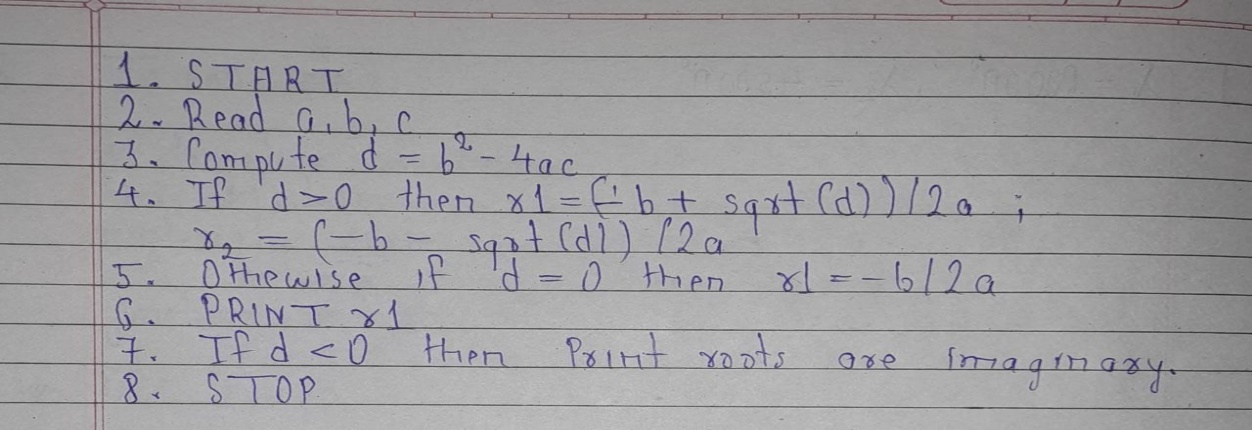 1. START
2. Read a, b, c
3. Compute d = b² - 4ac
4. If d>0 then r1 = (-b + sqrt(d))/2a ;
r2 = (-b - sqrt(d))/2a
5. Othewise if d = 0 then r1 = -b/2a
6. PRINT r1
7. If d <0 then Print roots are imaginary.
8. STOP